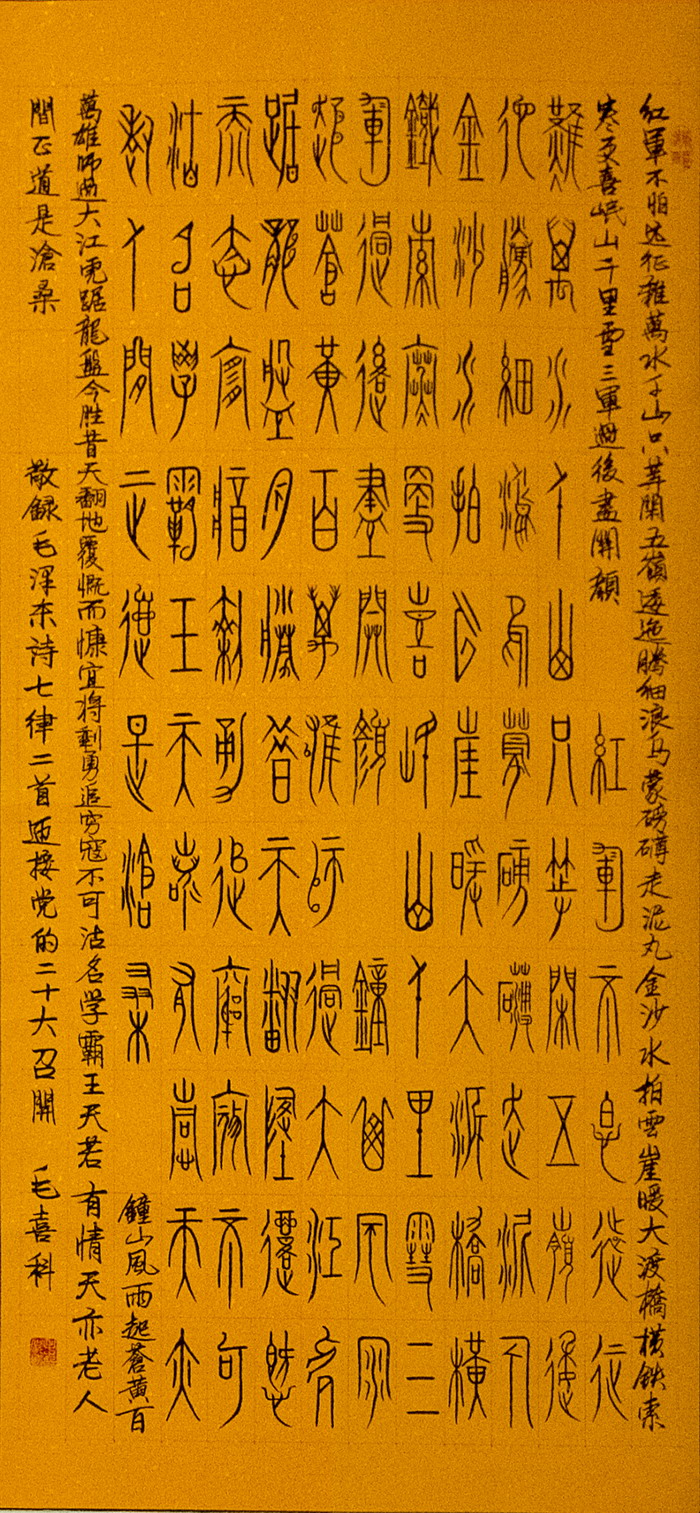 红軍不怕远征难萬水千山只等闲五嶺逶迤腾细浪乌蒙磅礴走泥丸金沙水拍雲崖暖大渡橋横铁索
寒更喜岷山千里雪三軍過後盡開顔
紅軍不怕遠征
難萬水千山只等閑五嶺逶
迤騰細浪烏蒙磅礴走泥丸
金沙水拍雲崖暖大渡橋橫
鐵索寒更喜岷山千里雪三
軍過後盡開顔 鐘山風雨
起蒼黃百萬雄師過大江虎
踞龍盤今勝昔天翻地覆慨
而慷宜將剩勇追窮寇不可
沽名學霸王天若有情天亦
老人間正道是滄桑
鐘山風雨起蒼黄百
萬雄师過大江虎踞龍盤今胜昔天翻地覆慨而慷宜将剩勇追穷寇不可沽名学霸王天若有情天亦老人
間正道是滄桑
敬録毛泽东诗七律二首迎接党的二十大召開 毛喜科